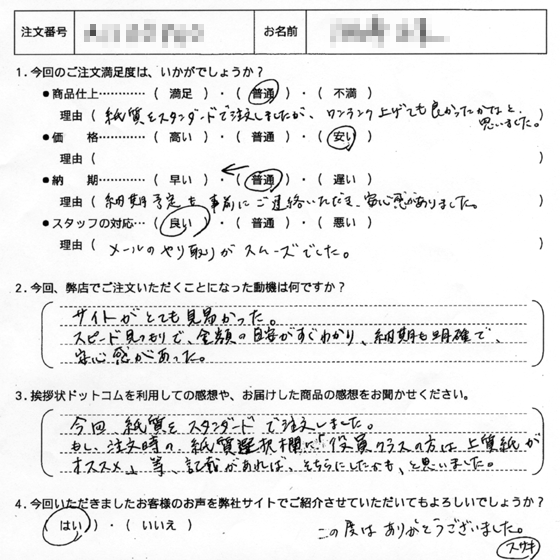 注文番号 お名前
1．今回のご注文満足度は、いかがでしょうか？
●商品仕上………… （ 満足 ）・（ 普通 ）・（ 不満 ）
理由（ 紙質をスタンダードで注文しましたが、ワンランク上げても良かったかなと、思いました。 ）
●価　　格………… （ 高い ）・（ 普通 ）・（ 安い ）
理由（ ）
●納　　期………… （ 早い ）・（ 普通 ）・（ 遅い ）
理由（ 納期予定も事前にご連絡いただき、安心感がありました。 ）
●スタッフの対応… （ 良い ）・（ 普通 ）・（ 悪い ）
理由（ メールのやり取りがスムーズでした。 ）
2．今回、弊店でご注文いただくことになった動機は何ですか？
サイトがとても見易かった。
スピード見つもりで、金額の目安がすぐわかり、納期も明確で、
安心感があった。
3．挨拶状ドットコムを利用しての感想や、お届けした商品の感想をお聞かせください。
今回、紙質をスタンダードで注文しました。
もし、注文時の、紙質選択欄に「役員クラスの方は上質紙が
オススメ」等、記載があれば、そちらにしたかも、と思いました。
4．今回いただきましたお客様のお声を弊社サイトでご紹介させていただいてもよろしいでしょうか？
（ はい ）・（ いいえ ） この度はありがとうございました。
スサキ